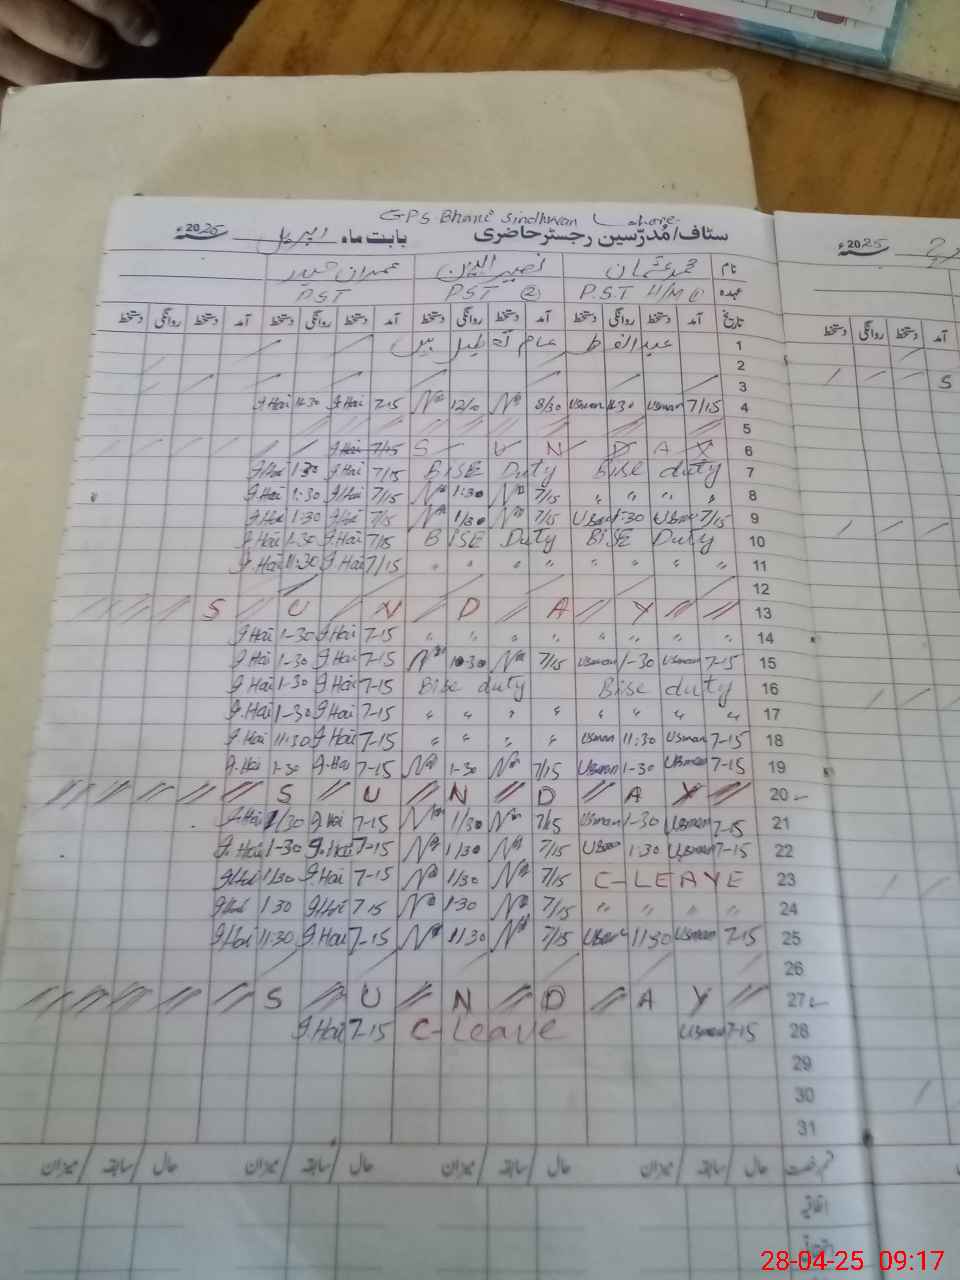 GPS Bhane Sindhwan Lahore
سٹاف/مُدرّسین رجسٹر حاضری بابت ماہ اپریل 2025ء
2025ء
نام محمد عثمان نصیر الدین عمران حیدر
عہدہ P.S.T H/M PST ② P.S.T
تاریخ آمد دستخط روانگی دستخط آمد دستخط روانگی دستخط آمد دستخط روانگی دستخط آمد دستخط روانگی دستخط
آمد دستخط روانگی دستخط
1 عید الفطر عام تعطیل
2
3
S
4 7/15 Usman 11-30 Usman 8/30 12/10 7-15 g.Hai 11-30 g.Hai
5
6 S U N D A Y 7/15 g.Hai
7 Bise duty BISE Duty 7/15 g.Hai 1:30 g.Hai
8 " " " " 7/15 1:30 7/15 g.Hai 1:30 g.Hai
9 7/15 Usman 1-30 Usman 7/15 1/30 7/15 g.Hai 1-30 g.Hai
10 BISE Duty BISE Duty 7/15 g.Hai 1-30 g.Hai
11 " " " " " " " " 7/15 g.Hai 11:30 g.Hai
12
13 S U N D A Y
14 " " " " " " " " 7-15 g.Hai 1-30 g.Hai
15 7-15 Usman 1-30 Usman 7/15 10-30 7-15 g.Hai 1-30 g.Hai
16 Bise duty Bise duty 7-15 g.Hai 1-30 g.Hai
17 " " " " " " " " 7-15 g.Hai 1-30 g.Hai
18 7-15 Usman 11:30 Usman " " " " 7-15 g.Hai 11:30 g.Hai
19 7-15 Usman 1-30 Usman 7/15 1-30 7-15 g.Hai 1-30 g.Hai
20 S U N D A Y
21 7-15 Usman 1-30 Usman 7/15 1/30 7-15 g.Hai 1/30 g.Hai
22 7-15 Usman 1:30 Usman 7/15 1/30 7-15 g.Hai 1-30 g.Hai
23 C-LEAVE 7/15 1/30 7-15 g.Hai 1/30 g.Hai
24 " " " " 7/15 1-30 7-15 g.Hai 1-30 g.Hai
25 7-15 Usman 11:30 Usman 7/15 11/30 7-15 g.Hai 11:30 g.Hai
26
27 S U N D A Y
28 7-15 Usman C-Leave 7-15 g.Hai
29
30
31
حال / سابقہ / میزان حال / سابقہ / میزان حال / سابقہ / میزان
اتفاقیہ
28-04-25 09:17